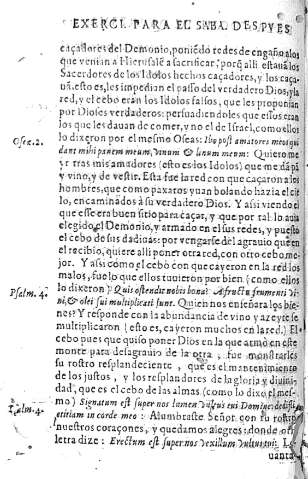 EXERCI. PARA EL SABA. DESPVES
caçadores del Demonio, poniẽdo redes de engaño a los
que venian a Hierusalẽ a sacrificar, porq̃ alli estauã los
Sacerdotes de los Idolos hechos caçadores, y los caça-
uã. esto es, les impedian el passo del verdadero Dios, y la
red, y el cebo eran los Idolos falsos, que les proponian
por Dioses verdaderos: persuadiendoles que essos eran
los que les dauan de comer, y no el de Israel, como ellos
Osee. 2.
lo dixeron por el mesmo Oseas: Ibo post amatores meos qui
dant mihi panem meum, vinum & lanum meum: Quiero me
yr tras mis amadores (esto es los Idolos) que me dã pã
y vino, y de vestir. Esta fue la red con que caçaron a los
hombres, que como paxaros yuan bolando hazia el cie
lo, encaminados a su verdadero Dios. Y assi viendo el
que esse era buen sitio para caçar, y que por tal lo auia
elegido el Demonio, y armado en el sus redes, y puesto
el cebo de sus dadiuas: por vengarse del agrauio que en
el recibio, quiere alli poner otra red, con otro cebo me-
jor. Y assi como el cebo con que cayeron en la red los
malos, fue lo que ellos tuuieron por bien (como ellos
Psalm. 4.
lo dixeron) Quis ostendit nobis bona? a fructu frumenti vi-
ni, & olei sui multiplicati sunt. Quien nos enseñara los bie-
nes? Y responde con la abundancia de vino y azeyte se
multiplicaron (esto es, cayeron muchos en la red.) El
cebo pues que quiso poner Dios en la que armò en este
monte para desagrauio de la otra, fue monstrarles
su rostro resplandeciente, que es el mantenimiento
de los justos, y los resplandores de la gloria y diuini-
dad, que es el cebo de las almas (como lo dixo el mes-
Psalm. 4.
mo) Signatum est super nos lumen vultus tui Domine: dedisti
letitiam in corde meo: Alumbraste Señor con tu rostro
nuestros coraçones, y quedamos alegres: donde otra
letra dize: Erectum est super nos vexillum vultus tui. Le-
uanta